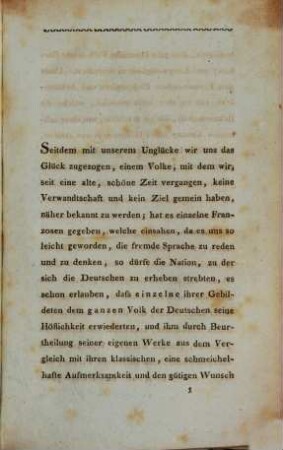 Seitdem mit unserem Unglücke wir uns das
Glück zugezogen, einem Volke, mit dem wir,
seit eine alte, schöne Zeit vergangen, keine
Verwandtschaft und kein Ziel gemein haben,
näher bekannt zu werden; hat es einzelne Fran-
zosen gegeben, welche einsahen, da es uns so
leicht geworden, die fremde Sprache zu reden
und zu denken, so dürfe die Nation, zu der
sich die Deutschen zu erheben strebten, es
schon erlauben, daſs einzelne ihrer Gebil-
deten dem ganzen Volk der Deutschen seine
Höflichkeit erwiederten, und ihm durch Beur-
theilung seiner eigenen Werke aus dem Ver-
gleich mit ihren klassischen, eine schmeichel-
hafte Aufmerksamkeit und den gütigen Wunsch
1